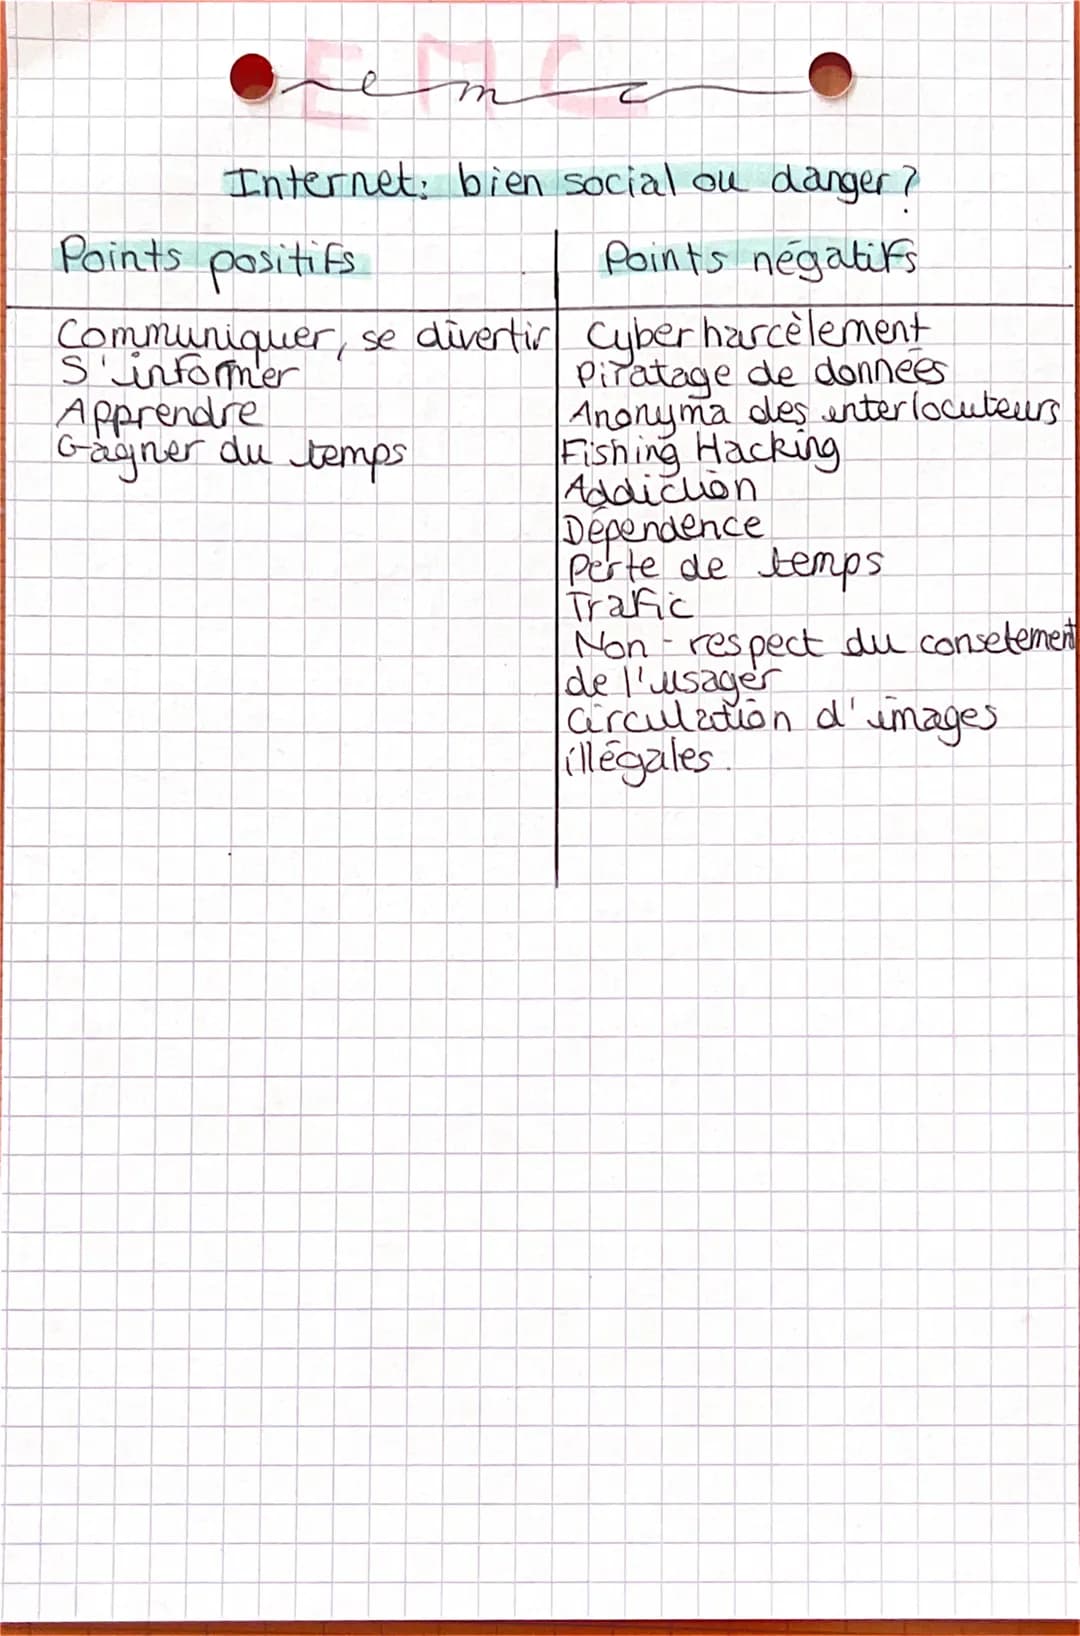 EMC
e m c
Internet: bien social ou danger ?
Points positifs
Communiquer, se divertir
S'informer
Apprendre
Gagner du temps
Points négatifs
Cyber harcèlement
Piratage de données
Anonyma des interlocuteurs
Fishing Hacking
Addiction
Dépendence
Perte de temps
Trafic
Non-respect du consetement
de l'usager
Circulation d'images
illégales.